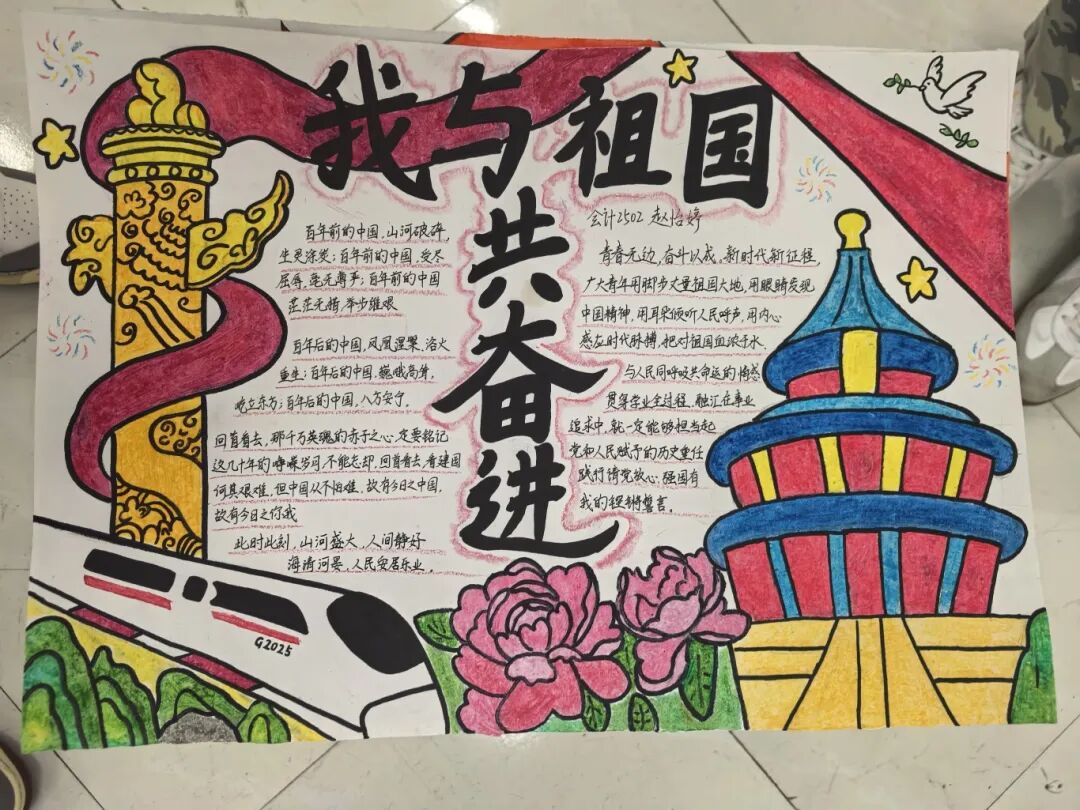 我与祖国
共奋进
会计2502 赵怡婷
百年前的中国,山河破碎,
生灵涂炭;百年前的中国,受尽
屈辱,毫无尊严;百年前的中国
茫茫无措,举步维艰
百年后的中国,凤凰涅槃,浴火
重生;百年后的中国,巍峨高耸,
屹立东方;百年后的中国,八方安宁。
回首看去,那千万英魂的赤子之心一定要铭记
这几十年的峥嵘岁月,不能忘却,回首看去,看建国
何其艰难,但中国从不怕难,故有今日之中国,
故有今日之你我
此时此刻,山河盛大,人间静好
海清河晏,人民安居乐业。
青春无边,奋斗以成,新时代新征程,
广大青年用脚步丈量祖国大地,用眼睛发现
中国精神,用耳朵倾听人民呼声,用内心
感应时代脉搏,把对祖国血浓于水、
与人民同呼吸共命运的情感
贯穿学业全过程,融汇在事业
追求中,就一定能够担当起
党和人民赋予的历史重任
践行请党放心、强国有
我的铿锵誓言。
G2025